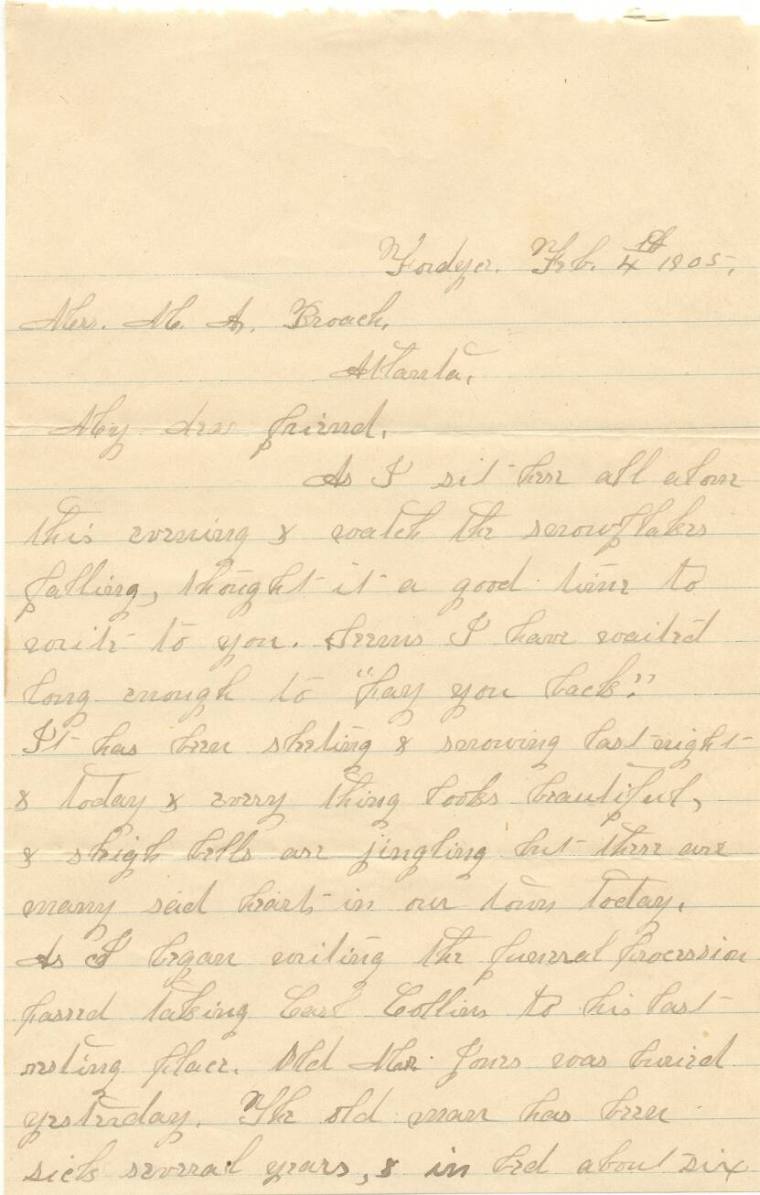 Fordyce. Feb. 4th 1905,
Mrs. M. A. Broach,
Atlanta,
My dear friend,
As I sit here all alone
this evening & watch the snowflakes
falling, thought it a good time to
write to you. Seems I have waited
long enough to "pay you back".
It has been sleeting & snowing last night
& today & every thing looks beautiful,
& sleigh bells are jingling but there are
many sad hearts in our town today.
As I began writing the funeral procession
passed taking Carl Collins to his last
resting place. Old Mr. Jones was buried
yesterday. The old man has been
sick several years, & in bed about six